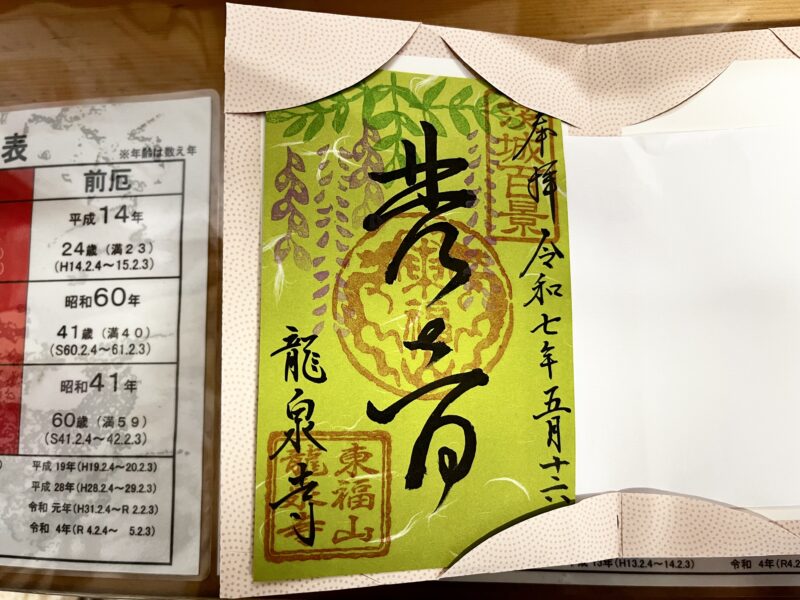 表
※年齢は数え年
前厄
平成14年
24歳（満２３）
(H14.2.4～15.2.3)
昭和60年
41歳（満４０）
(S60.2.4～61.2.3)
昭和41年
60歳（満５９）
(S41.2.4～42.2.3)
平成 19年(H19.2.4～20.2.3)
平成 28年(H28.2.4～29.2.3)
令和 元年(H31.2.4～R 2.2.3)
令和 4年(R 4.2.4～ 5.2.3)
奉拝 令和七年五月十六
茨城百景
東福
龍泉寺
東福山
龍泉寺
13年(H13.2.4～14.2.3)
令和 4年(R4.2